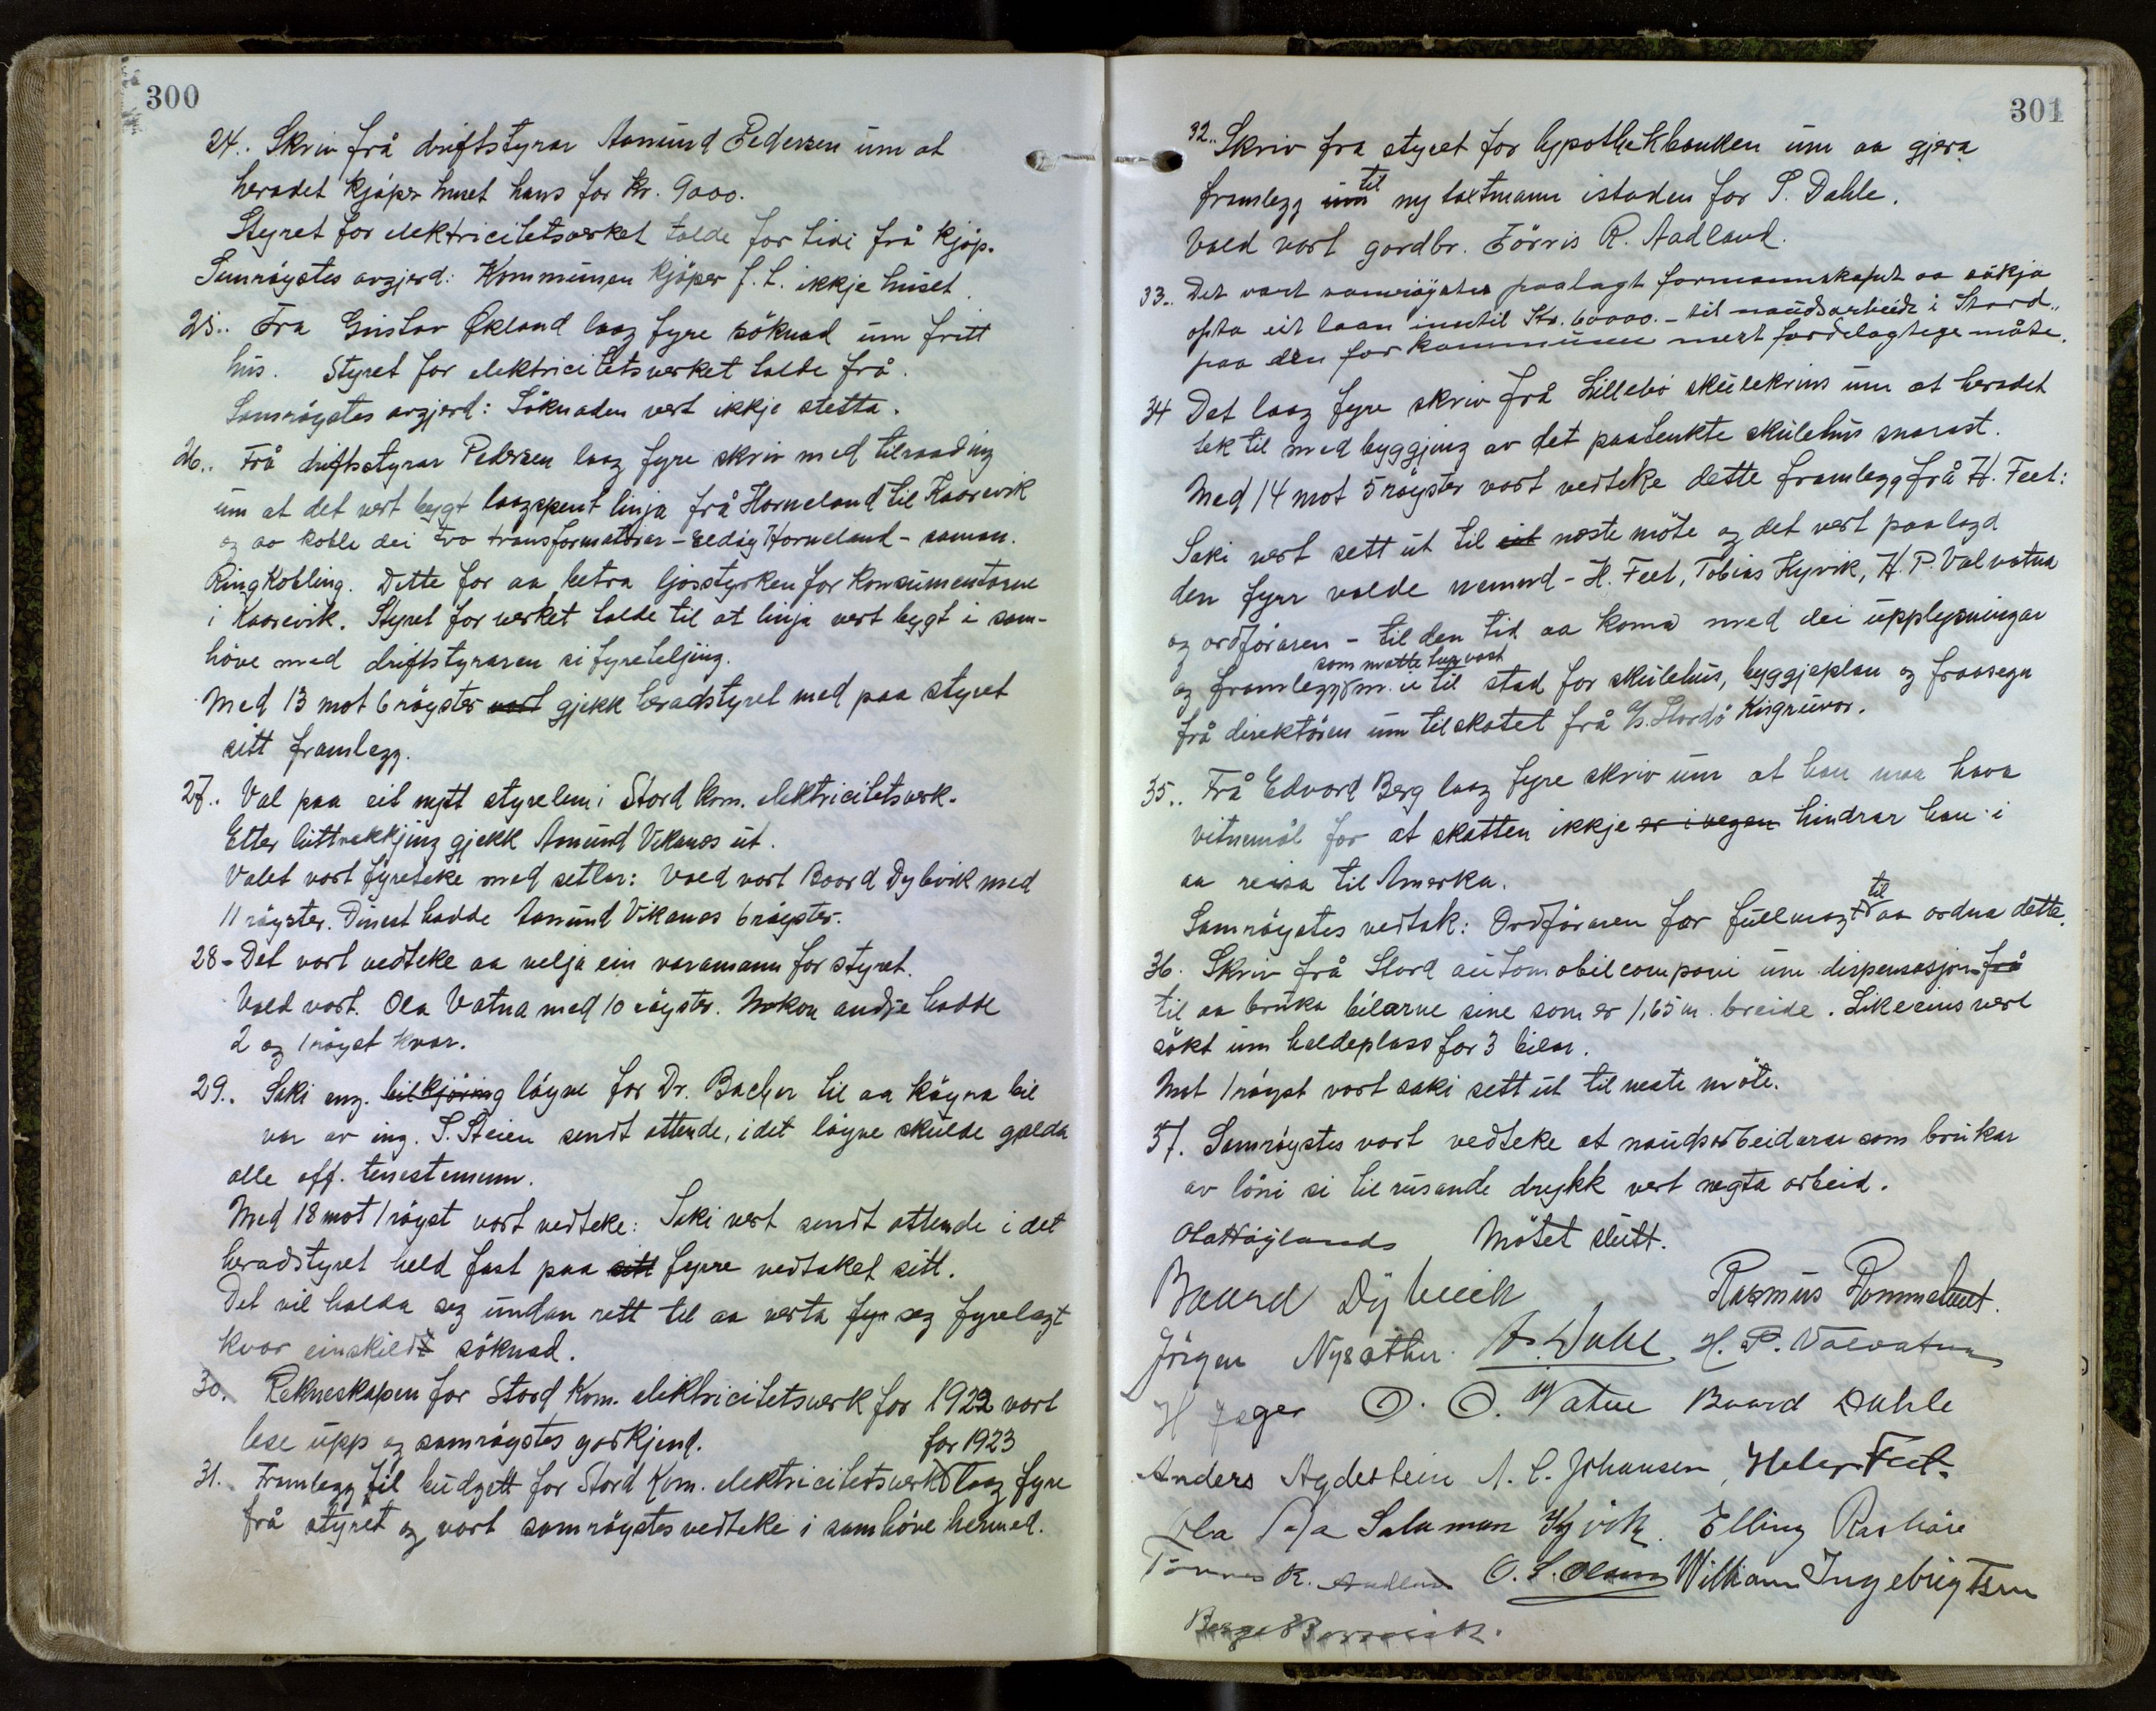 300
24.. Skriv frå driftstyrar Aamund Pedersen um at
heradet kjöper huset hans for kr. 9000.
Styret for elektricitetsverket talde for tidi frå kjöp.
Samröystes avgjerd: Kommunen kjöper f. t. ikkje huset.
25.. Fra Gustav Økland laag fyre söknad um fritt
hus. Styret for elektricitetsverket talde frå.
Samröystes avgjerd: Söknaden vert ikkje stetta.
26.. Frå driftstyrar Pedersen laag fyre skriv med tilraading
um at det vert bygt laagspent linja frå Horneland til Kaarevik
og aa koble dei tvo transformatorar - Eldöy Horneland - saman.
Ringkobling. Dette for aa betra ljosstyrken for konsumentarne
i Kaarevik. Styret for verket talde til at linja vert bygt i sam-
höve med driftstyraren si fyreteljing.
Med 13 mot 6 röyster vart gjekk heradstyret med paa styret
sitt framlegg.
27.. Val paa eit nytt styrelem i Stord kom. elektricitetsverk.
Etter luttrekkjing gjekk Amund Vikanes ut.
Valet vart fyreteke med setlar: Vald vart Baard Dybvik med
11 röyster. Dinest hadde Aamund Vikanes 6 röyster.
28 - Det vart vedteke aa velja ein varamann for styret.
Vald vart. Ola Vatna med 10 röyster. Nokon andre hadde
2 og 1 röyst kvar.
29.. Saki ang. bilkjöring löyve for Dr. Bacher til aa köyra bil
var av ing. S. Steien sendt attende, idet löyve skulde gjelda
alle off. tenestemenn.
Med 18 mot 1 röyst vart vedteke: Saki vert sendt attende i det
heradstyret held fast paa sitt fyrre vedtaket sitt.
Det vil halda seg undan rett til aa verta fyr seg fyrelagt
kvar einskild söknad.
30. Rekneskapen for Stord Kom. elektricitetsverk for 1922 vart
lese upp og samröystes godkjend.
for 1923
31. Framlegg til budgett for Stord Kom. elektricitetsverk laag fyre
frå styret og vart samröystes vedteke i samhöve hermed.
301
32.. Skriv fra styret for hypothekbanken um aa gjera
til
framlegg um ny taxtmann istaden for S. Dahle.
Vald vart gardbr. Törris R. Aadland.
33.. Det vart samröystes paalagt formannskapet aa sökja
opta eit laan inntil Kr. 60000.- til naudsarbeide i Stord..
paa den for kommunen mest fordelagtege måte.
34 Det laag fyre skriv frå Lillebö skulekrins um at heradet
tek til med byggjing av det paatenkte skulehus snarast.
Med 14 mot 5 röyster vart vedteke dette framlegg frå H. Feet:
Saki vert sett ut til eit næste möte og det vert paalagd
den fyrr valde nemnd - H. Feet, Tobias Hyvik, H. P. Valvatna
og ordföraren - til den tid aa koma med dei upplysningar
som matte turvast
og framlegg m. a. til stad for skulehus, byggjeplan og fraasegn
frå direktören um tilskotet frå A/s. Stordö Kisgruvor.
35.. Frå Edvard Berg laag fyre skriv um at han maa hava
vitnemål for at skatten ikkje er i vegen hindrar han i
aa reisa til Amerka.
til
Samröystes vedtak: Ordföraren fær fullmagt aa ordna dette.
36. Skriv frå Stord automobilcompani um dispensasjon frå
til aa bruka bilarne sine som er 1,65 m. breide. Likeeins vert
sökt um haldeplass for 3 bilar.
Mot 1 röyst vart saki sett ut til neste möte.
37. Samröystes vart vedteke at naudsarbeidarar som brukar
av löni si til rusande drykk vert negta arbeid.
Ola Höylands Mötet slutt.
Baard Dybvik Rasmus Rommetveit.
Jörgen Nysæther. A. Dahl H. P. Valvatna
H Jæger O. O. Vatne Baard Dahle
Anders Agdestein A. C. Johansen, Helge Feet.
Ola Salamon Kyvik. Elling Rasböe
R. Aadland O. S. Olsen William Ingebrigtsen